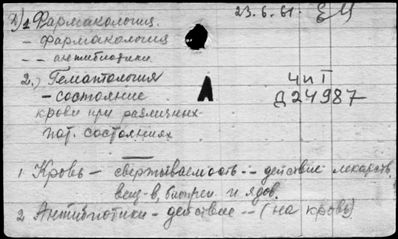 2) 1 Фармакология. 23.6.61.
- фармакология
- - антибиотики
2.) Гематология А Ч и Т
- состояние Д24987
крови при различных
пат. состояниях
1 Кровь - свертываемость -- действие лекарств.
вещ-в, биопреп. и ядов.
2 Антибиотики - действие -- (на кровь)